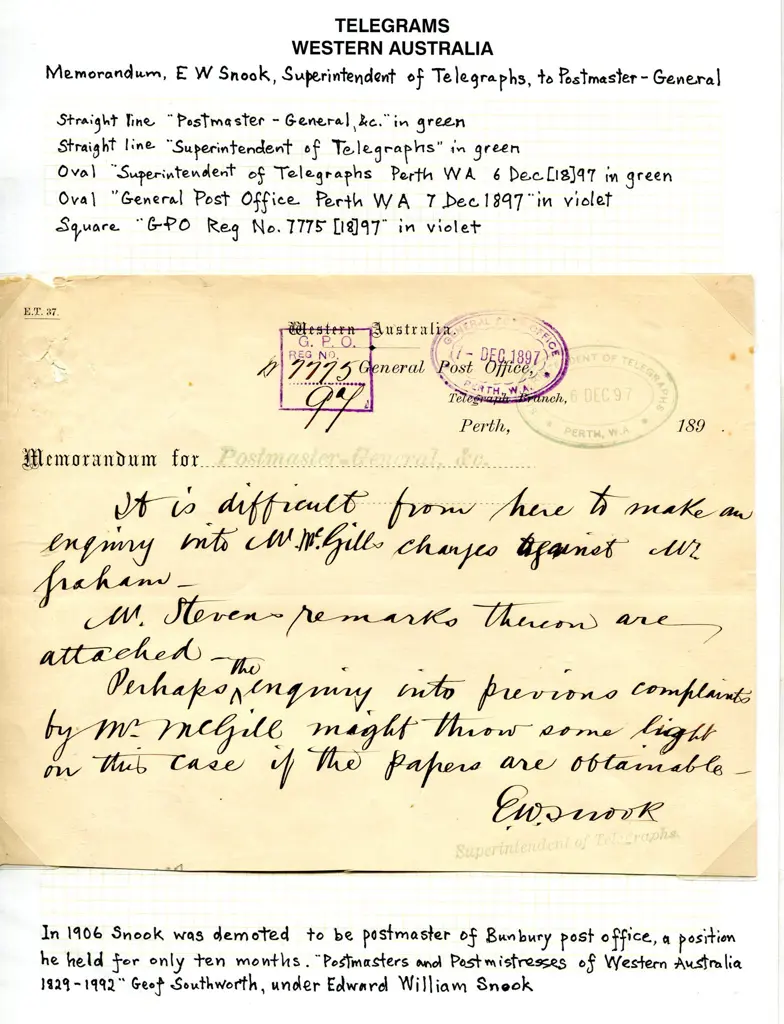 TELEGRAMS
WESTERN AUSTRALIA
Memorandum, E W Snook, Superintendent of Telegraphs, to Postmaster-General
Straight line "Postmaster - General, &c." in green
Straight line "Superintendent of Telegraphs" in green
Oval "Superintendent of Telegraphs Perth WA 6 Dec [18]97 in green
Oval "General Post Office Perth WA 7 Dec 1897" in violet
Square "GPO Reg No. 7775 [18]97" in violet
E.T. 37.
Western Australia.
G. P. O.
REG NO.
7775
97
GENERAL POST OFFICE
7 - DEC. 1897
PERTH, W.A.
General Post Office,
Telegraph Branch,
ENT OF TELEGRAPHS
6 DEC 97
PERTH, W.A
Perth, 189 .
Memorandum for Postmaster-General, &c.
It is difficult from here to make an
enquiry into Mr. McGills charges against Mr
Graham—
Mr. Stevens remarks thereon are
attached—
Perhaps the enquiry into previous complaints
by Mr McGill might throw some light
on this case if the papers are obtainable—
E.W. Snook
Superintendent of Telegraphs.
In 1906 Snook was demoted to be postmaster of Bunbury post office, a position
he held for only ten months. "Postmasters and Postmistresses of Western Australia
1829-1992" Geof Southworth, under Edward William Snook